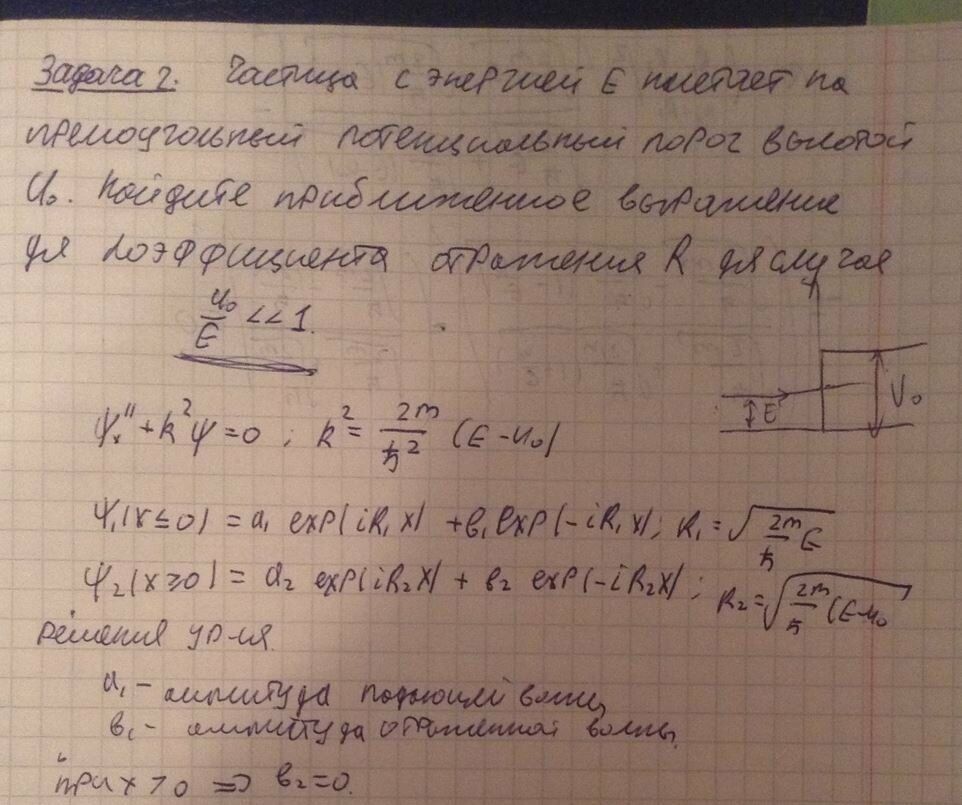 Задача 2. Частица с энергией E налетает на
прямоугольный потенциальный порог высотой
U₀. Найдите приближенное выражение
для коэффициента отражения R для случая
U₀/E << 1.
E
U₀
ψₓ'' + k²ψ = 0 ; k² = 2m/ħ² (E - U₀)
ψ₁(x ≤ 0) = a₁ exp(ik₁x) + b₁ exp(-ik₁x) ; k₁ = √(2m/ħ E
ψ₂(x ≥ 0) = a₂ exp(ik₂x) + b₂ exp(-ik₂x) ; k₂ = √(2m/ħ (E - U₀
решения ур-ия.
a₁ - амплитуда падающей волны,
b₁ - амплитуда отраженной волны.
При x > 0 => b₂ = 0.